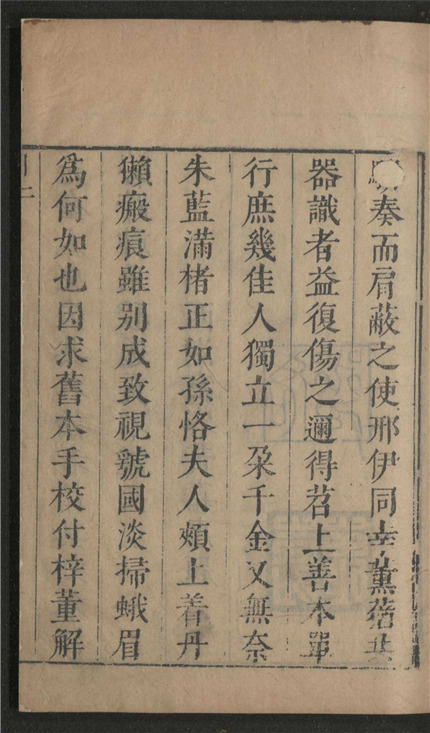 奏而肩蔽之使邢伊同幸薰蕕共
器識者益復傷之邇得苕上善本單
行庶幾佳人獨立一朶千金又無奈
朱藍滿楮正如孫恪夫人頰上着丹
獺瘢痕雖别成致視虢國淡掃蛾眉
爲何如也因求舊本手校付梓董解